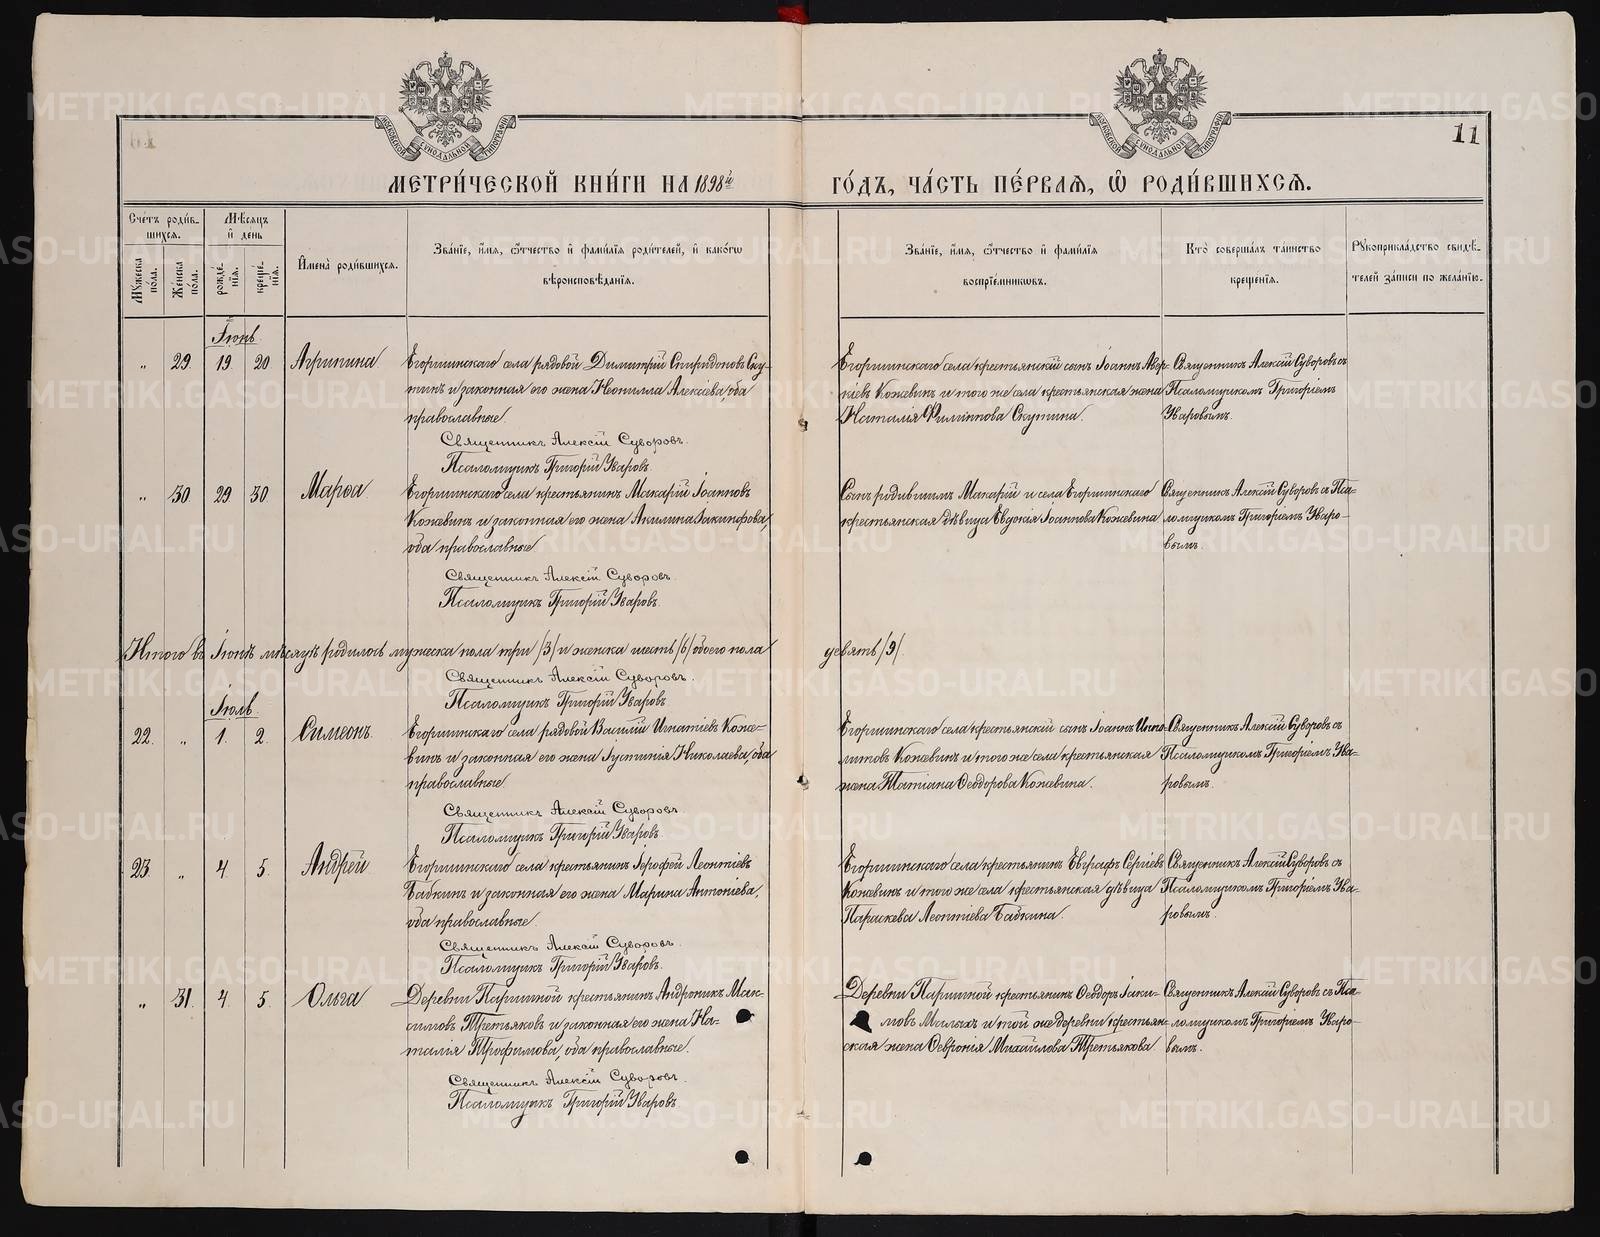 МЕТРИ́ЧЕСКОЙ КНИ́ГИ НА 1898й ГО́ДЪ, ЧА́СТЬ ПЕ́РВАЯ, Ѡ҆ РОДИ́ВШИХСЯ.
11
МОСКОВСКОЙ СѴНОДАЛЬНОЙ ТИПОГРАФІИ
МОСКОВСКОЙ СѴНОДАЛЬНОЙ ТИПОГРАФІИ
Сче́тъ роди́вшихся.
Му́жеска по́ла.
Же́нска по́ла.
Мѣ́сяцъ и҆ де́нь
рожде́нїя.
креще́нїя.
И҆мена̀ роди́вшихся.
Зва́нїе, и҆́мя, ѻ҆́тчество и҆ фами́лїя роди́телей, и҆ како́гѡ
вѣроисповѣ́данїя.
Зва́нїе, и҆́мя, ѻ҆́тчество и҆ фами́лїя
воспрїе́мникѡвъ.
Кто̀ соверша́лъ та́инство
креще́нїя.
Рꙋкоприкла́дство свидѣ́-
телей за́писи по жела́нїю.
Іюнь
„ 29 19 20 Агрипина
Егоршинскаго села рядовой Димитрій Спиридоновъ Ску-
тинъ и законная его жена Неонилла Алексіева, оба
православные.
Священникъ Алексій Суворовъ.
Псаломщикъ Григорій Уваровъ.
Егоршинскаго села крестьянскій сынъ Іоаннъ Авер-
кіевъ Кожевинъ и того же села крестьянская жена
Наталія Филиппова Скутина.
Священникъ Алексій Суворовъ съ
Псаломщикомъ Григоріемъ
Уваровымъ.
„ 30 29 30 Марѳа
Егоршинскаго села крестьянинъ Макарій Іоанновъ
Кожевинъ и законная его жена Акилина Іакинфова,
оба православные
Священникъ Алексій Суворовъ.
Псаломщикъ Григорій Уваровъ.
Сынъ родившимъ Макарій и села Егоршинскаго
крестьянская дѣвица Евдокія Іоаннова Кожевина
Священникъ Алексій Суворовъ съ Пса-
ломщикомъ Григоріемъ Уваро-
вымъ.
Итого въ Іюнѣ мѣсяцѣ родилось мужеска пола три /3/ и женска шесть /6/ обоего пола девять /9/.
Священникъ Алексій Суворовъ.
Псаломщикъ Григорій Уваровъ
Іюль
22. „ 1. 2. Симеонъ
Егоршинскаго села рядовой Василій Игнатіевъ Коже-
винъ и законная его жена Іустинія Николаева, оба
православные.
Священникъ Алексій Суворовъ.
Псаломщикъ Григорій Уваровъ.
Егоршинскаго села крестьянскій сынъ Іоаннъ Иппо-
литовъ Кожевинъ и того же села крестьянская
жена Татіана Ѳеодорова Кожевина.
Священникъ Алексій Суворовъ съ
Псаломщикомъ Григоріемъ Ува-
ровымъ.
23. „ 4. 5. Андрей
Егоршинскаго села крестьянинъ Іерофей Леонтіевъ
Бабкинъ и законная его жена Марина Антоніева,
оба православные.
Священникъ Алексій Суворовъ.
Псаломщикъ Григорій Уваровъ.
Егоршинскаго села крестьянинъ Евграфъ Сергіевъ
Кожевинъ и того же села крестьянская дѣвица
Параскева Леонтіева Бабкина.
Священникъ Алексій Суворовъ съ
Псаломщикомъ Григоріемъ Ува-
ровымъ.
„ 31. 4. 5. Ольга
Деревни Паршиной крестьянинъ Андроникъ Мак-
симовъ Третьяковъ и законная его жена На-
талія Трофимова, оба православные.
Священникъ Алексій Суворовъ.
Псаломщикъ Григорій Уваровъ.
Деревни Паршиной крестьянинъ Ѳеодоръ Іаки-
мовъ Малыхъ и той же деревни крестьян-
ская жена Ѳевронія Михайлова Третьякова
Священникъ Алексій Суворовъ съ Пса-
ломщикомъ Григоріемъ Уваро-
вымъ.
METRIKI.GASO-URAL.RU